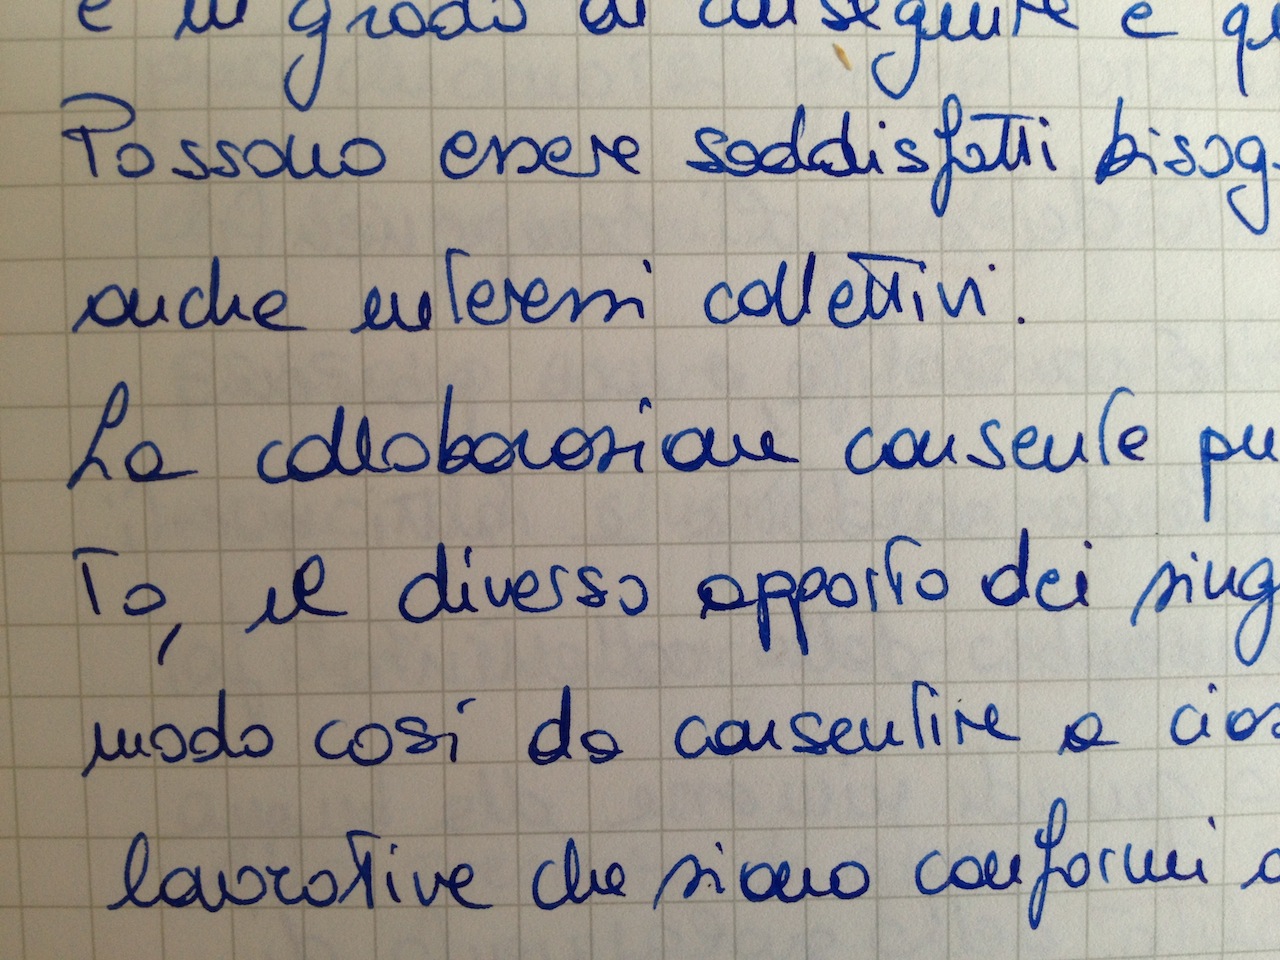 e in grado di conseguire e
Possono essere soddisfatti bisog
anche interessi collettivi.
La collaborazione consente pu
to, il diverso apporto dei sing
modo così da consentire a cias
lavorative che siano conformi a